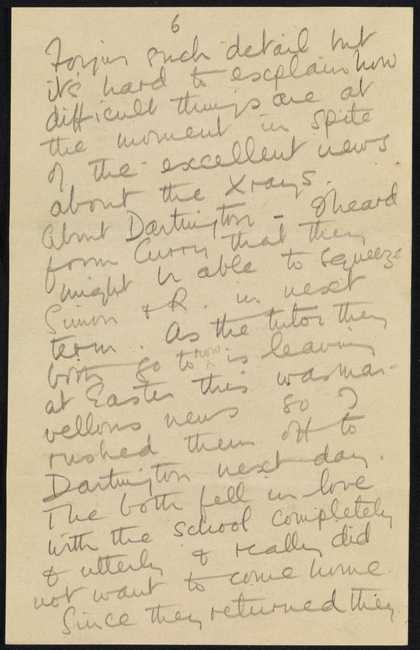 6
Forgive such detail but
it's hard to explain how
difficult things are at
the moment in spite
of the excellent news
about the Xrays.
About Dartington – I heard
from Curry that they
might be able to squeeze
Simon & R. in next
term. As the tutor they
both go to now is leaving
at Easter this was mar-
vellous news so I
rushed them off to
Dartington next day.
The both fell in love
with the school completely
& utterly & really did
not want to come home.
Since they returned they